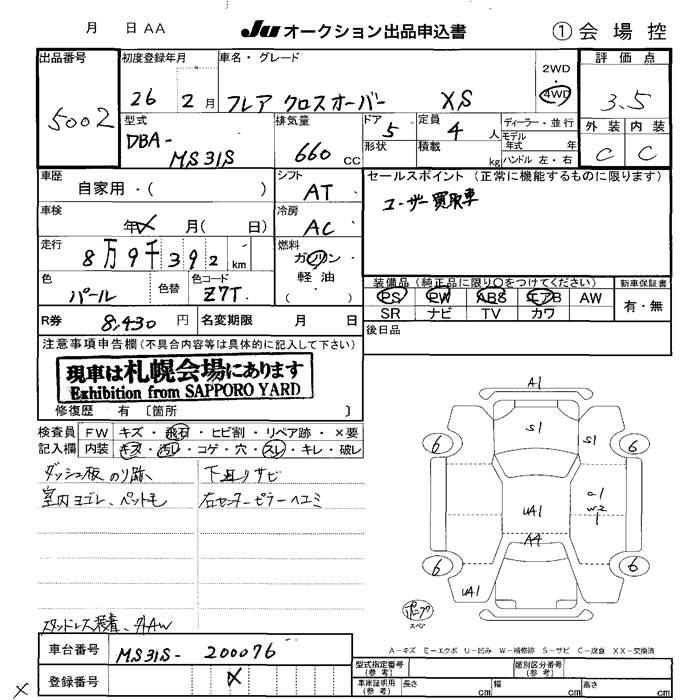 月 日 AA JU オークション出品申込書 ① 会場控
出品番号 初度登録年月 車名・グレード 2WD 4WD 評価点
5002 26 2月 フレア クロスオーバー XS 3.5
型式 排気量 ドア 5 定員 4人 ディーラー・並行 外装 内装
DBA- MS31S 660 CC 形状 積載 kg モデル年式 年 ハンドル 左・右 C C
車歴 自家用・( ) シフト AT セールスポイント (正常に機能するものに限ります)
車検 年 月( 日) 冷房 AC ユーザー買取車
走行 8万9千392 km 燃料 ガソリン 軽・油 ( )
色 パール 色替 色コード Z7T. 装備品 (純正品に限り○をつけてください) 新車保証書
PS PW ABS エアB AW 有・無
SR ナビ TV カワ
R券 8,430 円 名変期限 月 日 後日品
注意事項申告欄 (不具合内容等は具体的に記入して下さい)
現車は札幌会場にあります
Exhibition from SAPPORO YARD
修復歴 有 〔箇所 〕
検査員 FW キズ・飛石・ヒビ割・リペア跡・×要
記入欄 内装 キズ・汚レ・コゲ・穴・スレ・キレ・破レ
ダッシュ板 のり跡 下廻りサビ
室内ヨゴレ、ペットモ 右センターピラーヘコミ
A1
S1 S1
6 6
UA1 W2
A4
6 6
UA1
スペア
スタッドレス装着、 A-キズ E-エクボ U-凹み W-補修跡 S-サビ C-腐食 XX-交換済
車台番号 MS31S- 200076 型式指定番号 (参考) 類別区分番号 (参考)
登録番号 X 車庫証明用 (参考) 長さ cm 幅 cm 高さ cm
X